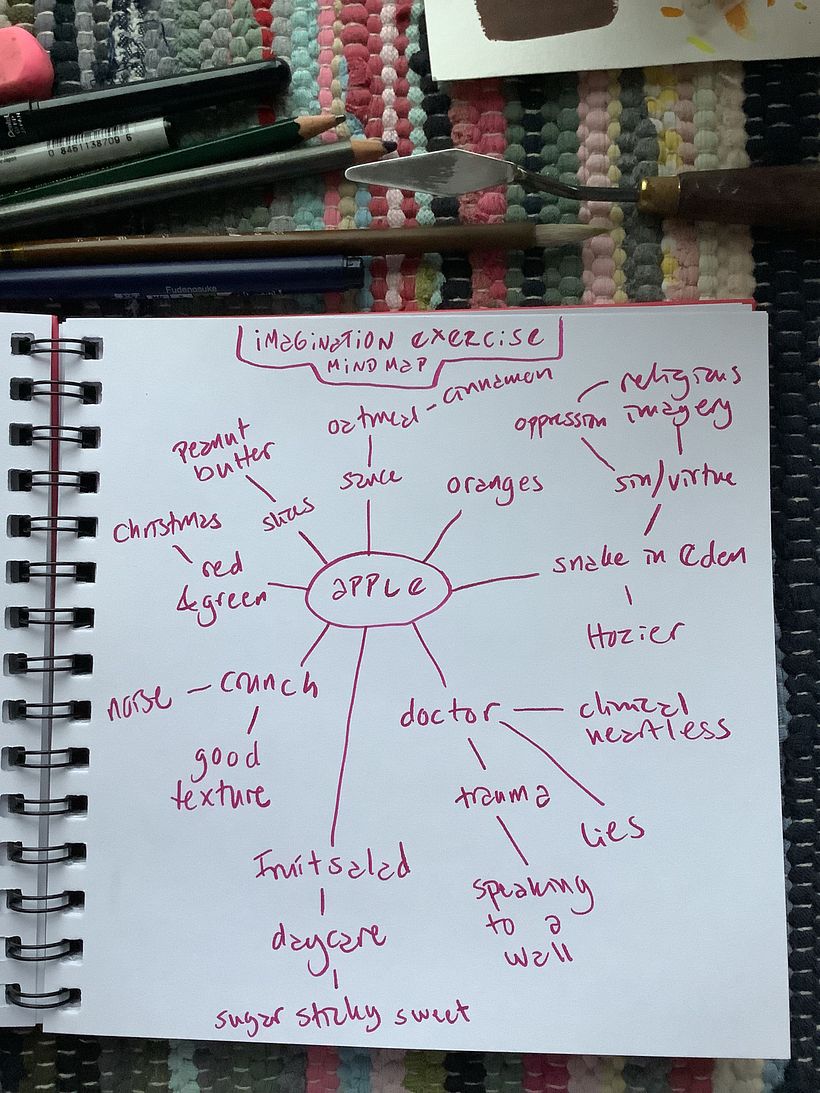 0 8461138709 6
Fudenosuke
IMAGINATION EXERCISE
MIND MAP
oatmeal - cinnamon
religious
imagery
oppression
peanut
butter
sauce
oranges
sin/virtue
slices
Christmas
red
&green
APPLE
snake in Eden
Hozier
noise
crunch
good
texture
doctor
clinical
heartless
trauma
lies
speaking
to a
wall
Fruit salad
daycare
sugar sticky sweet